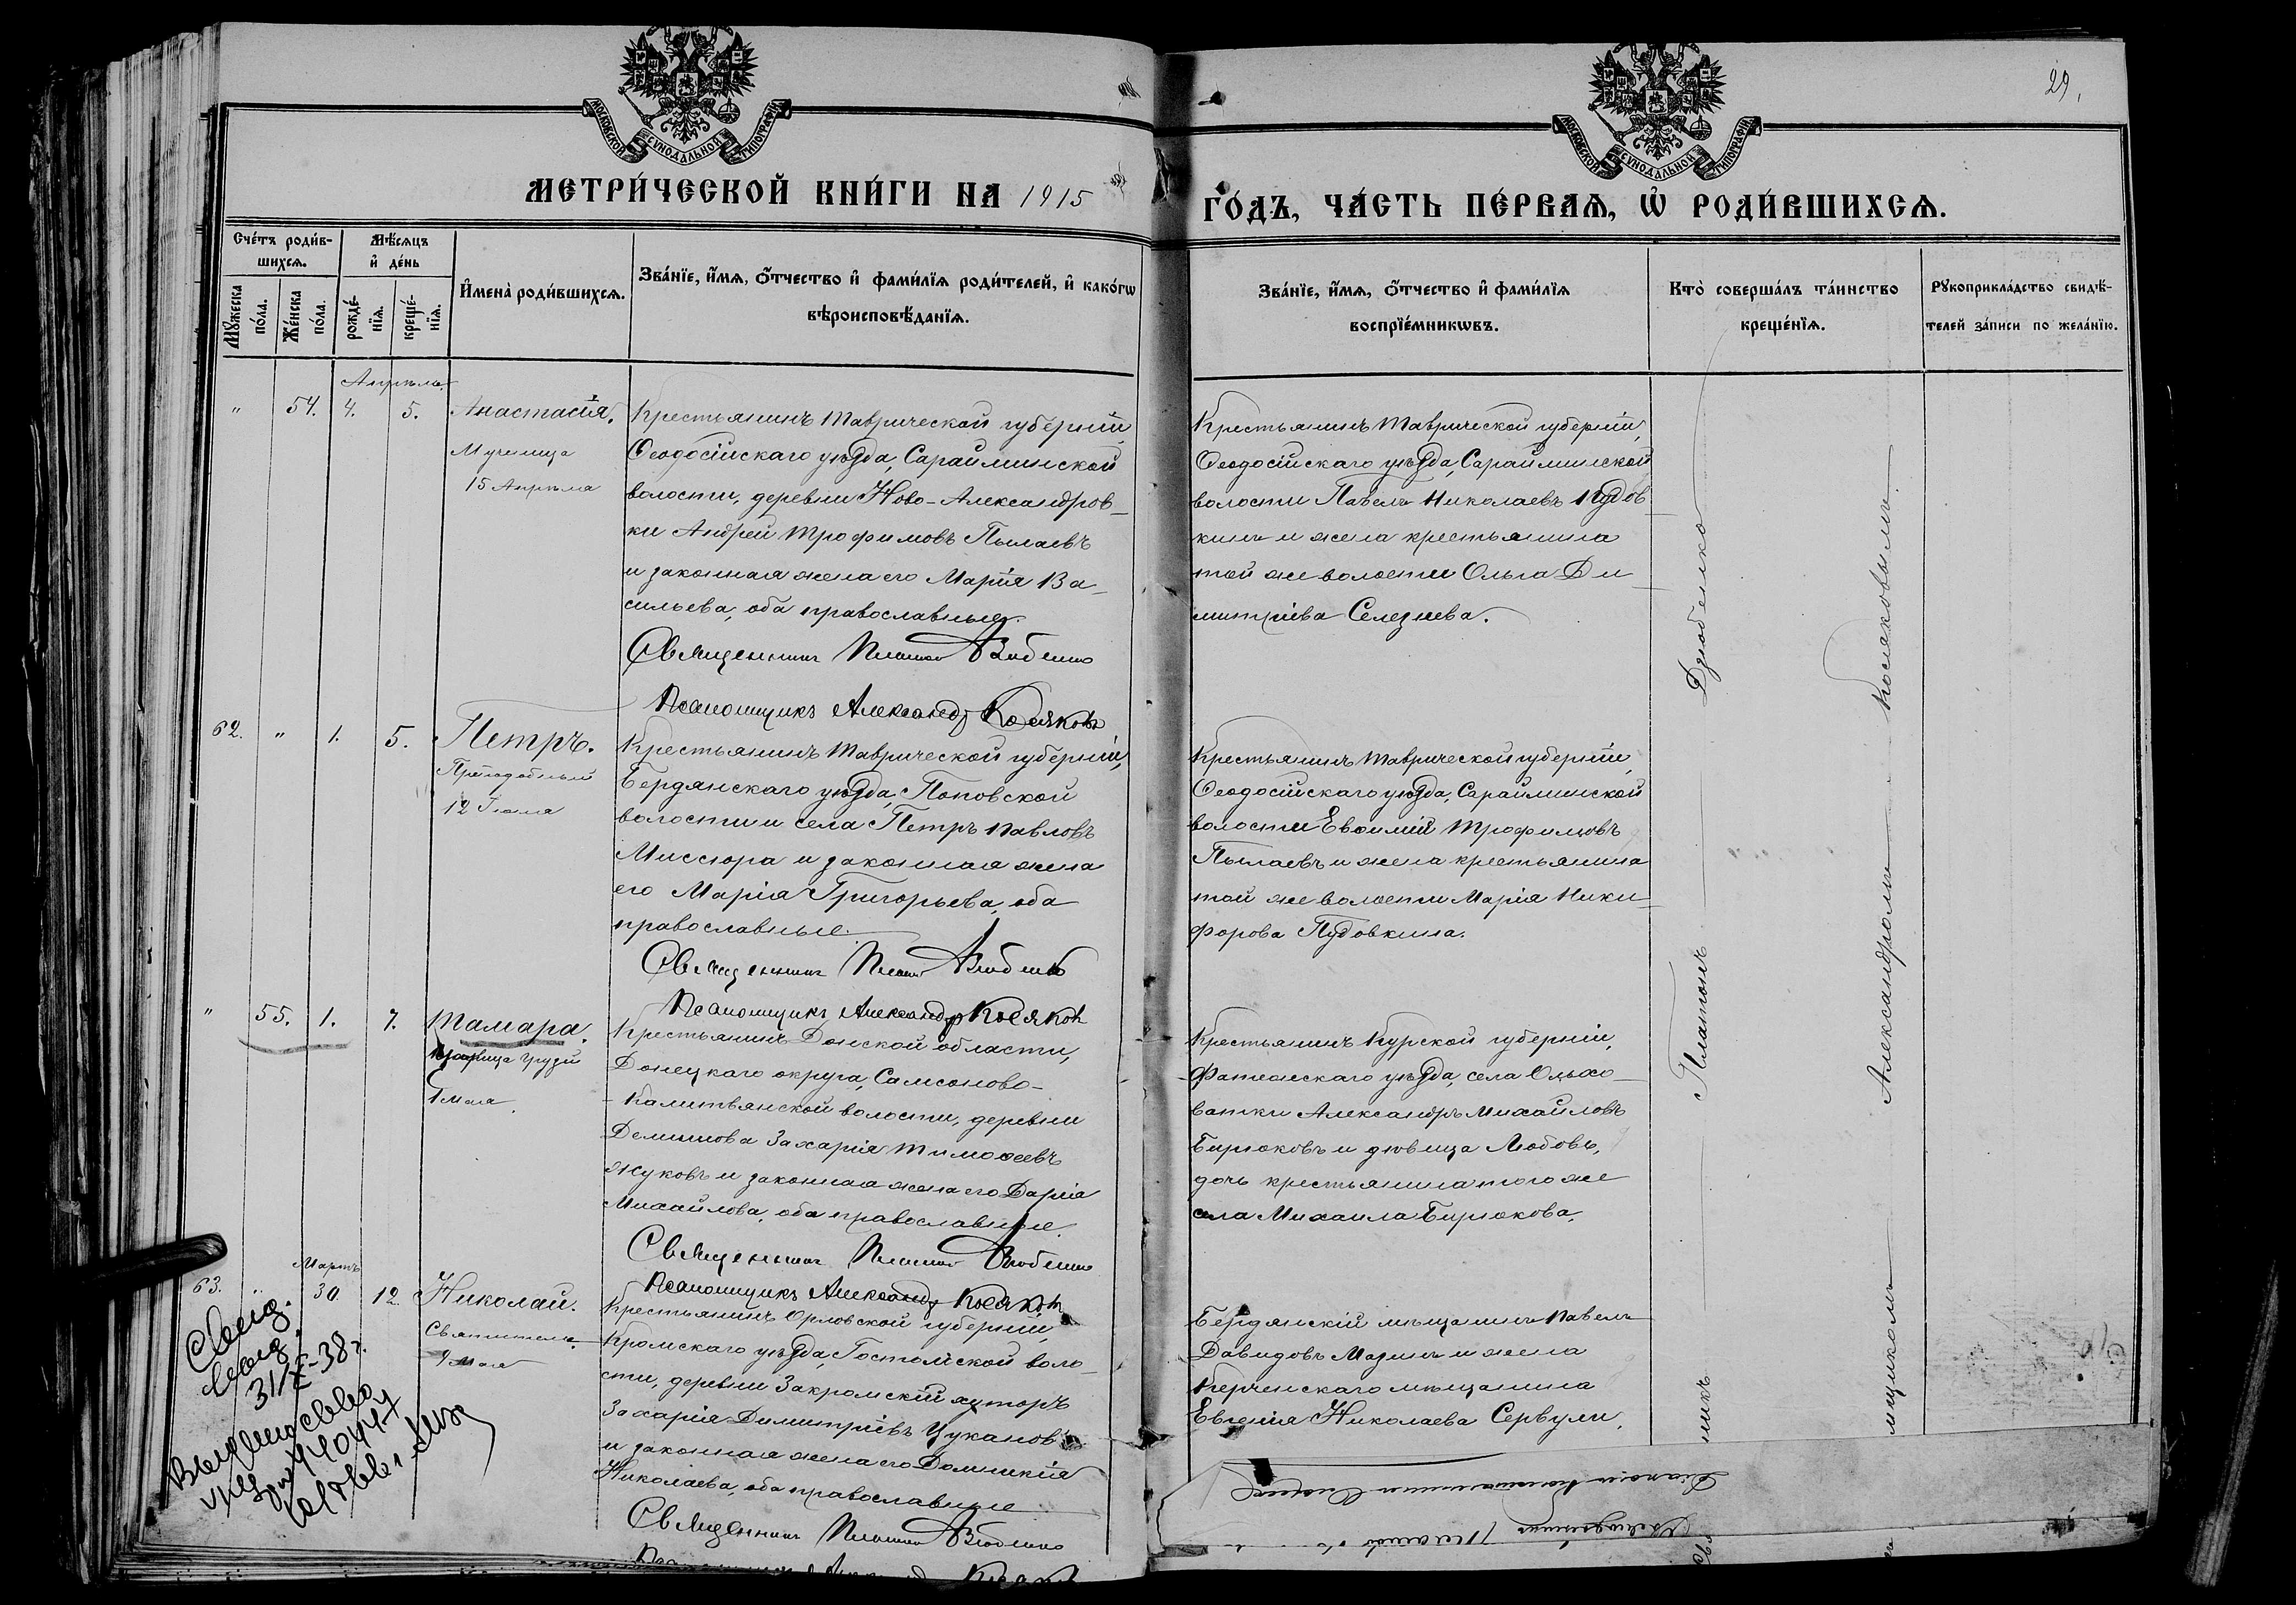 МОСКОВСКОЙ СѴНОДАЛЬНОЙ ТИПОГРАФІИ
МОСКОВСКОЙ СѴНОДАЛЬНОЙ ТИПОГРАФІИ
29.
МЕТРИ́ЧЕСКОЙ КНИ́ГИ НА 1915
ГО́ДЪ, ЧА́СТЬ ПЕ́РВАѦ, Ѡ҆ РОДИ́ВШИХСѦ.
Сче́тъ роди́в-
шихсѧ.
Мꙋжеска
по́ла.
Же́нска
по́ла.
Мѣ́сѧцъ
и҆ де́нь
рожде́-
нїѧ.
креще́-
нїѧ.
И҆мена̀ роди́вшихсѧ.
Зва́нїе, и҆́мѧ, ѻ҆́тчество и҆ фами́лїѧ роди́телей, и҆ како́гѡ
вѣроисповѣ́данїѧ.
Зва́нїе, и҆́мѧ, ѻ҆́тчество и҆ фами́лїѧ
воспрїе́мникѡвъ.
Кто̀ соверша́лъ та́инство
креще́нїѧ.
Рꙋкоприкла́дство свидѣ́-
телей за́писи по жела́нїю.
Апрѣль
" 54. 4. 5. Анастасія.
Мученица
15 Апрѣля
Крестьянинъ Таврической губерніи,
Ѳеодосійскаго уѣзда, Сарайминской
волости, деревни Ново-Александров-
ки Андрей Трофимовъ Пылаевъ
и законная жена его Марія Ва-
сильева, оба православные.
Священникъ Платонъ Дзюбенко
Псаломщикъ Александръ Косяковъ
Крестьянинъ Таврической губерніи,
Ѳеодосійскаго уѣзда, Сарайминской
волости Павелъ Николаевъ Пудов
кинъ и жена крестьянина
той же волости Ольга Ди-
митріева Селезнева.
62. " 1. 5. Петръ.
Преподобный
12 Іюня
Крестьянинъ Таврической губерніи,
Бердянскаго уѣзда, Поповской
волости и села Петръ Павловъ
Миссюра и законная жена
его Марія Григорьева, оба
православные.
Священникъ Платонъ Дзюбенко
Псаломщикъ Александръ Косяковъ
Крестьянинъ Таврической губерніи,
Ѳеодосійскаго уѣзда, Сарайминской
волости Евѳимій Трофимовъ
Пылаевъ и жена крестьянина
той же волости Марія Ники-
форова Пудовкина.
" 55. 1. 7. Тамара.
Царица Грузіи
1 мая.
Крестьянинъ Донской области,
Донецкаго округа, Самсоново-
-Калитвянской волости, деревни
Демишова Захарія Тимоѳеевъ
Жуковъ и законная жена его Дарія
Михайлова, оба православные.
Священникъ Платонъ Дзюбенко
Псаломщикъ Александръ Косяковъ
Крестьянинъ Курской губерніи,
Фатежскаго уѣзда, села Ольхо-
ватки Александръ Михайловъ
Бирюковъ и дѣвица Любовь,
дочь крестьянина того же
села Михаила Бирюкова.
Мартъ
63. " 30. 12. Николай.
Святитель.
9 мая
Крестьянинъ Орловской губерніи,
Кромскаго уѣзда, Гостомской воло-
сти, деревни Закромскій хуторъ
Захарія Димитріевъ Цукановъ
и законная жена его Домникія
Николаева, оба православные
Священникъ Платонъ Дзюбенко
Бердянскій мѣщанинъ Павелъ
Давидовъ Мазинъ и жена
Керченскаго мѣщанина
Евгенія Николаева Сервули.
никъ Платонъ Дзюбенко
мщикомъ Александромъ Косяковымъ.
31/X-38 г.